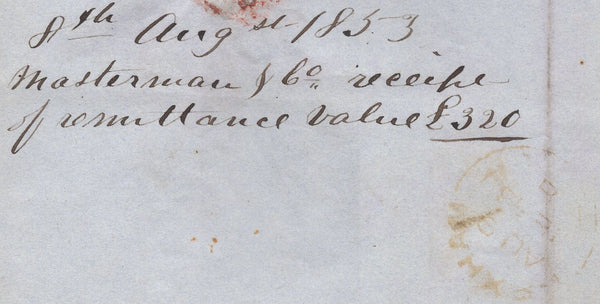 8th Augst 1853
Masterman & Co. receipt
of remittance value £320